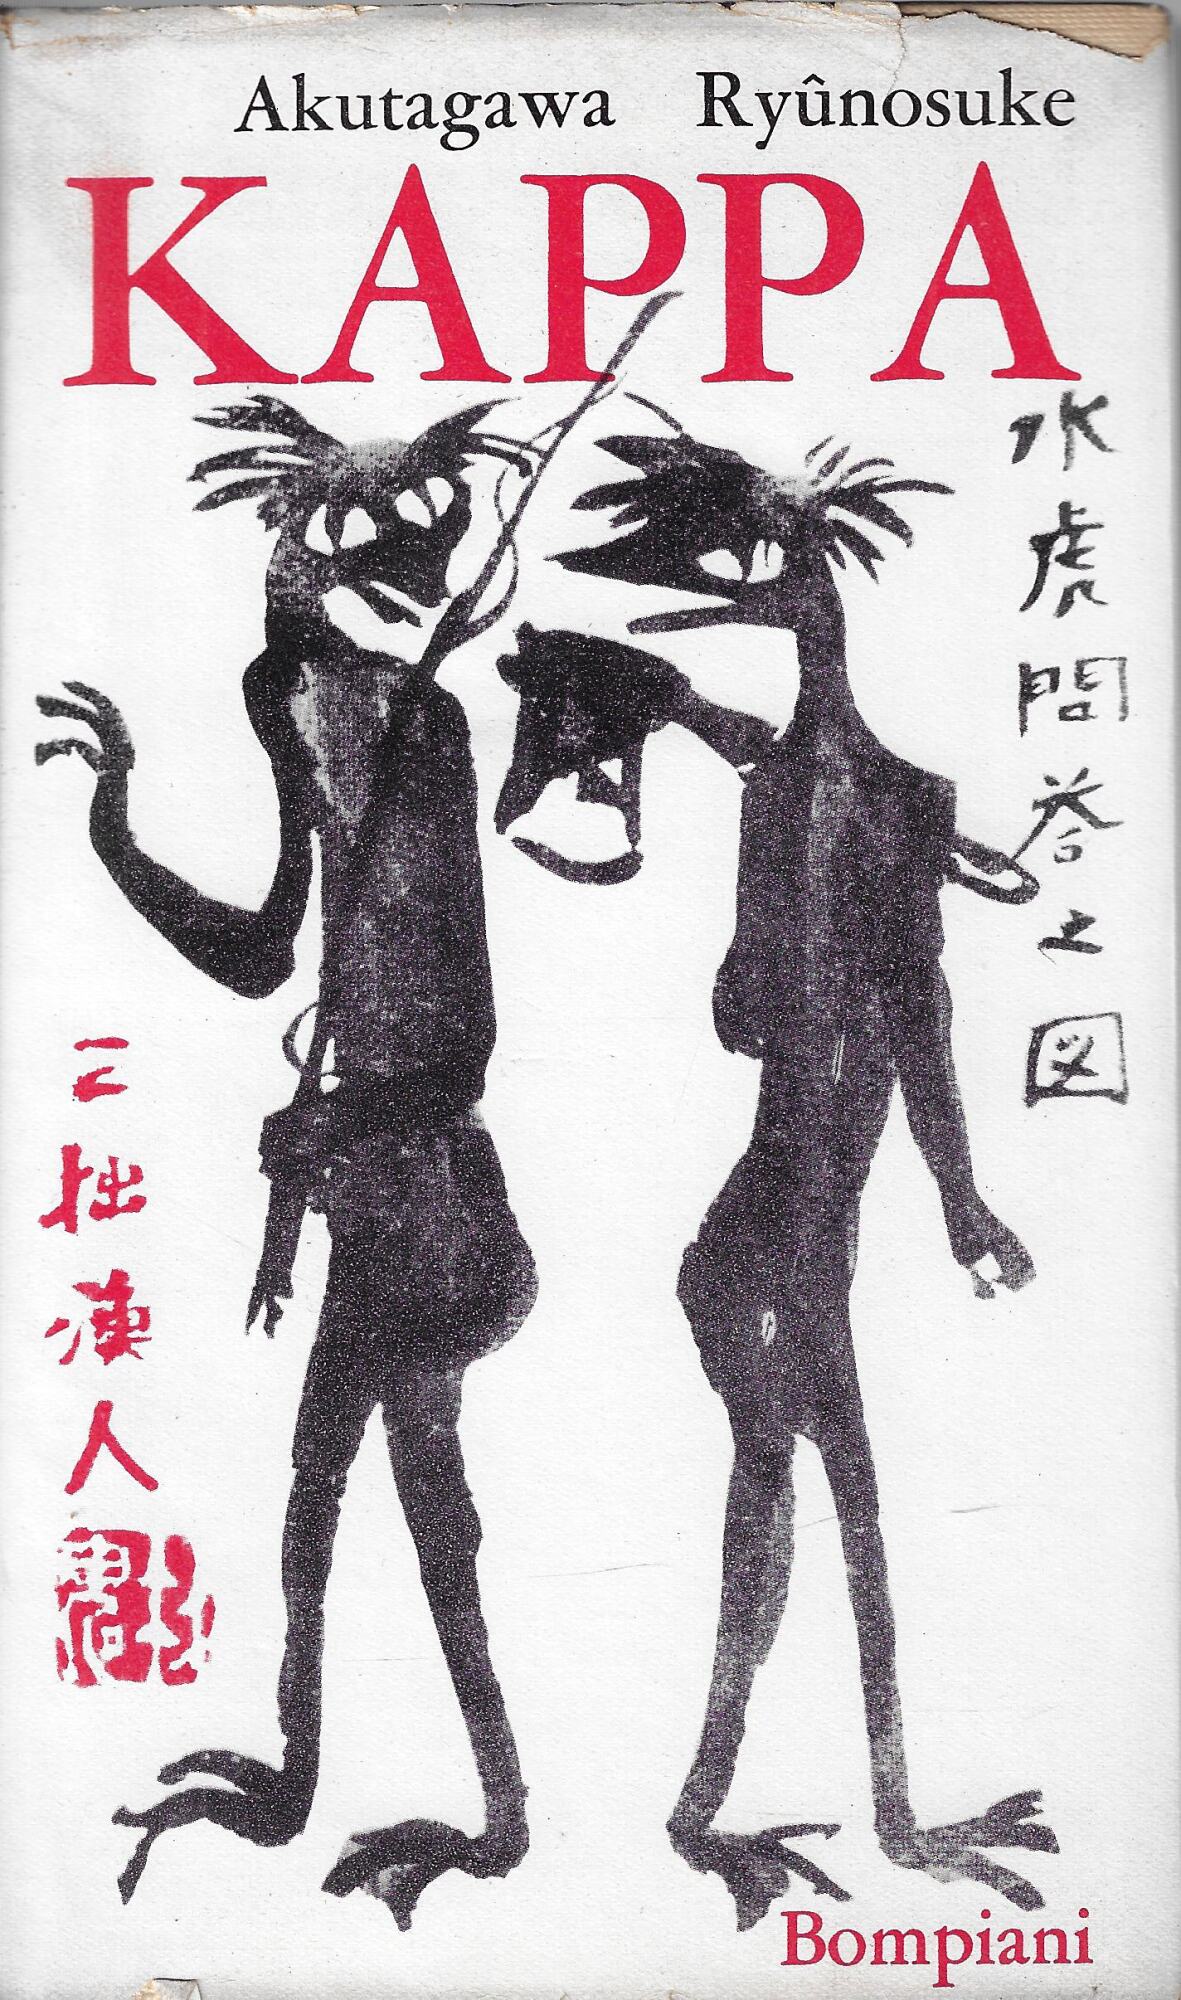 Akutagawa Ryûnosuke
KAPPA
水虎問答之図
三拙漢人
Bompiani